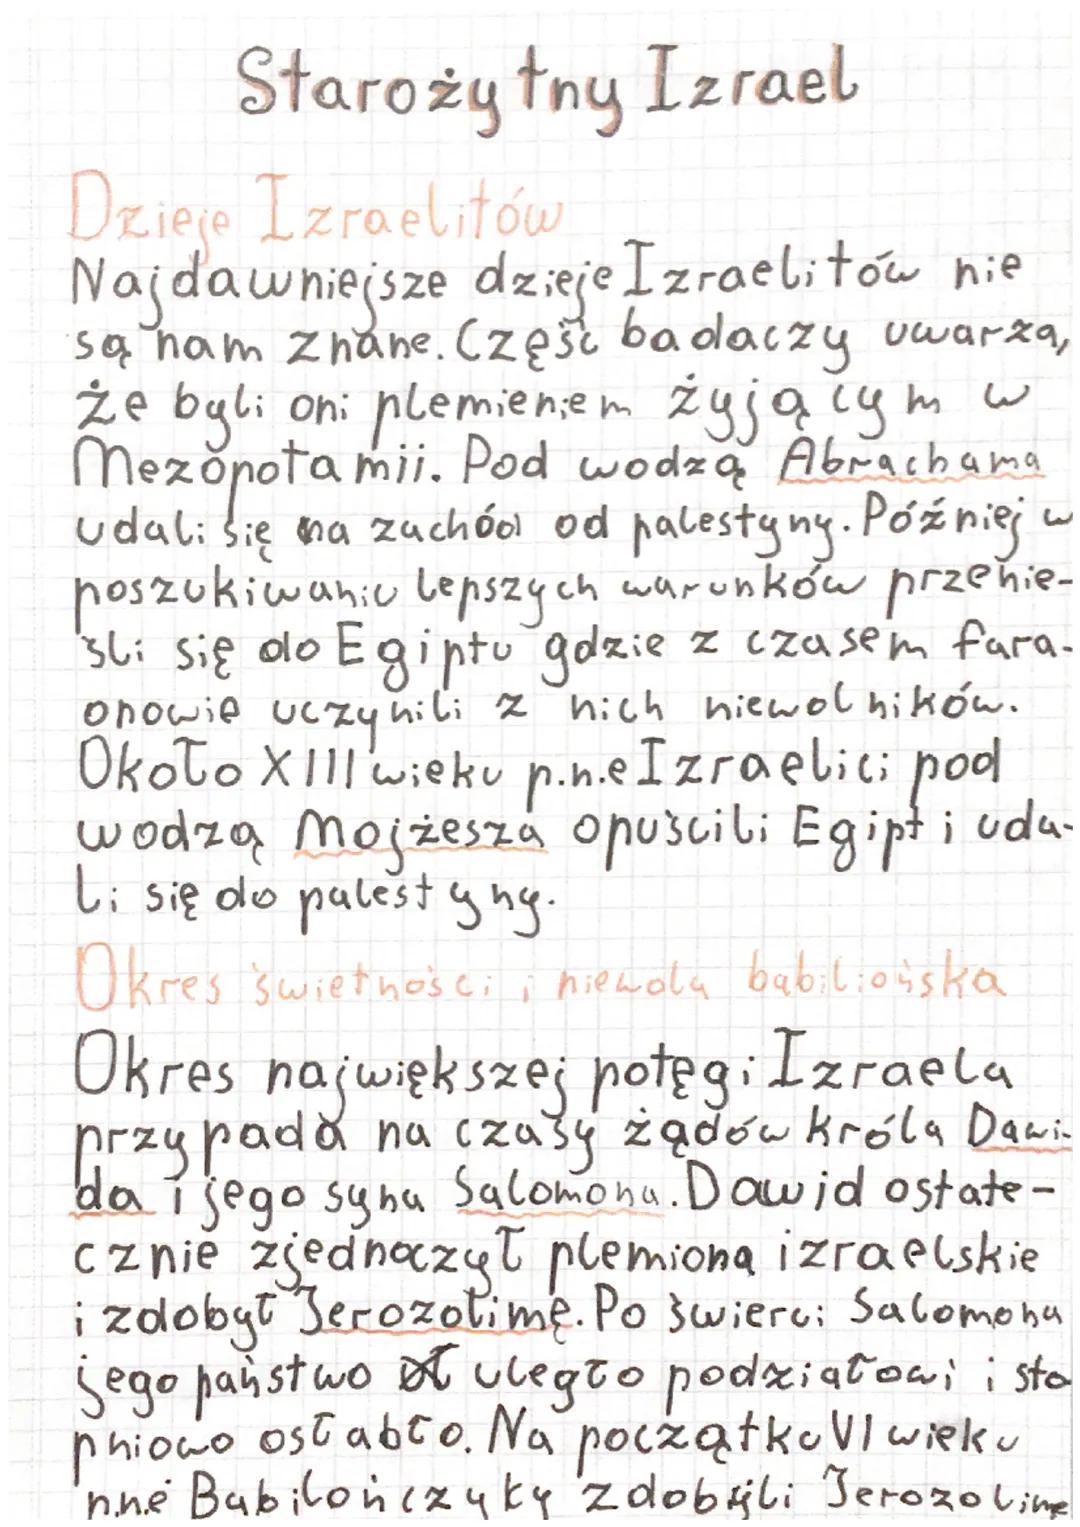 Starożytny Izrael
Dzieje Izraelitów
Najdawniejsze dzieje Izraelitów nie
są nam znane. Część badaczy uwarza,
że byli oni plemieniem żyjącym w
Mezopotamii. Pod wodzą Abrachama
udali się na zachód od palestyny. Później w
poszukiwaniu lepszych warunków przenie-
śli się do Egiptu gdzie z czasem fara-
onowie uczynili z nich niewolników.
Około XIII wieku p.n.e Izraelici pod
wodzą Mojżesza opuścili Egipt i uda-
li się do palestyny.
Okres świetności i niewola babiliońska
Okres największej potęgi Izraela
przypada na czasy żądów króla Dawi-
da i jego syna Salomona. Dawid ostate-
cznie zjednoczył plemiona izraelskie
i zdobył Jerozolimę. Po świerci Salomona
jego państwo uległo podziałowi i sto
pniowo osłabło. Na początku VI wieku
n.n.e Babilończyky zdobyli Jerozolimę